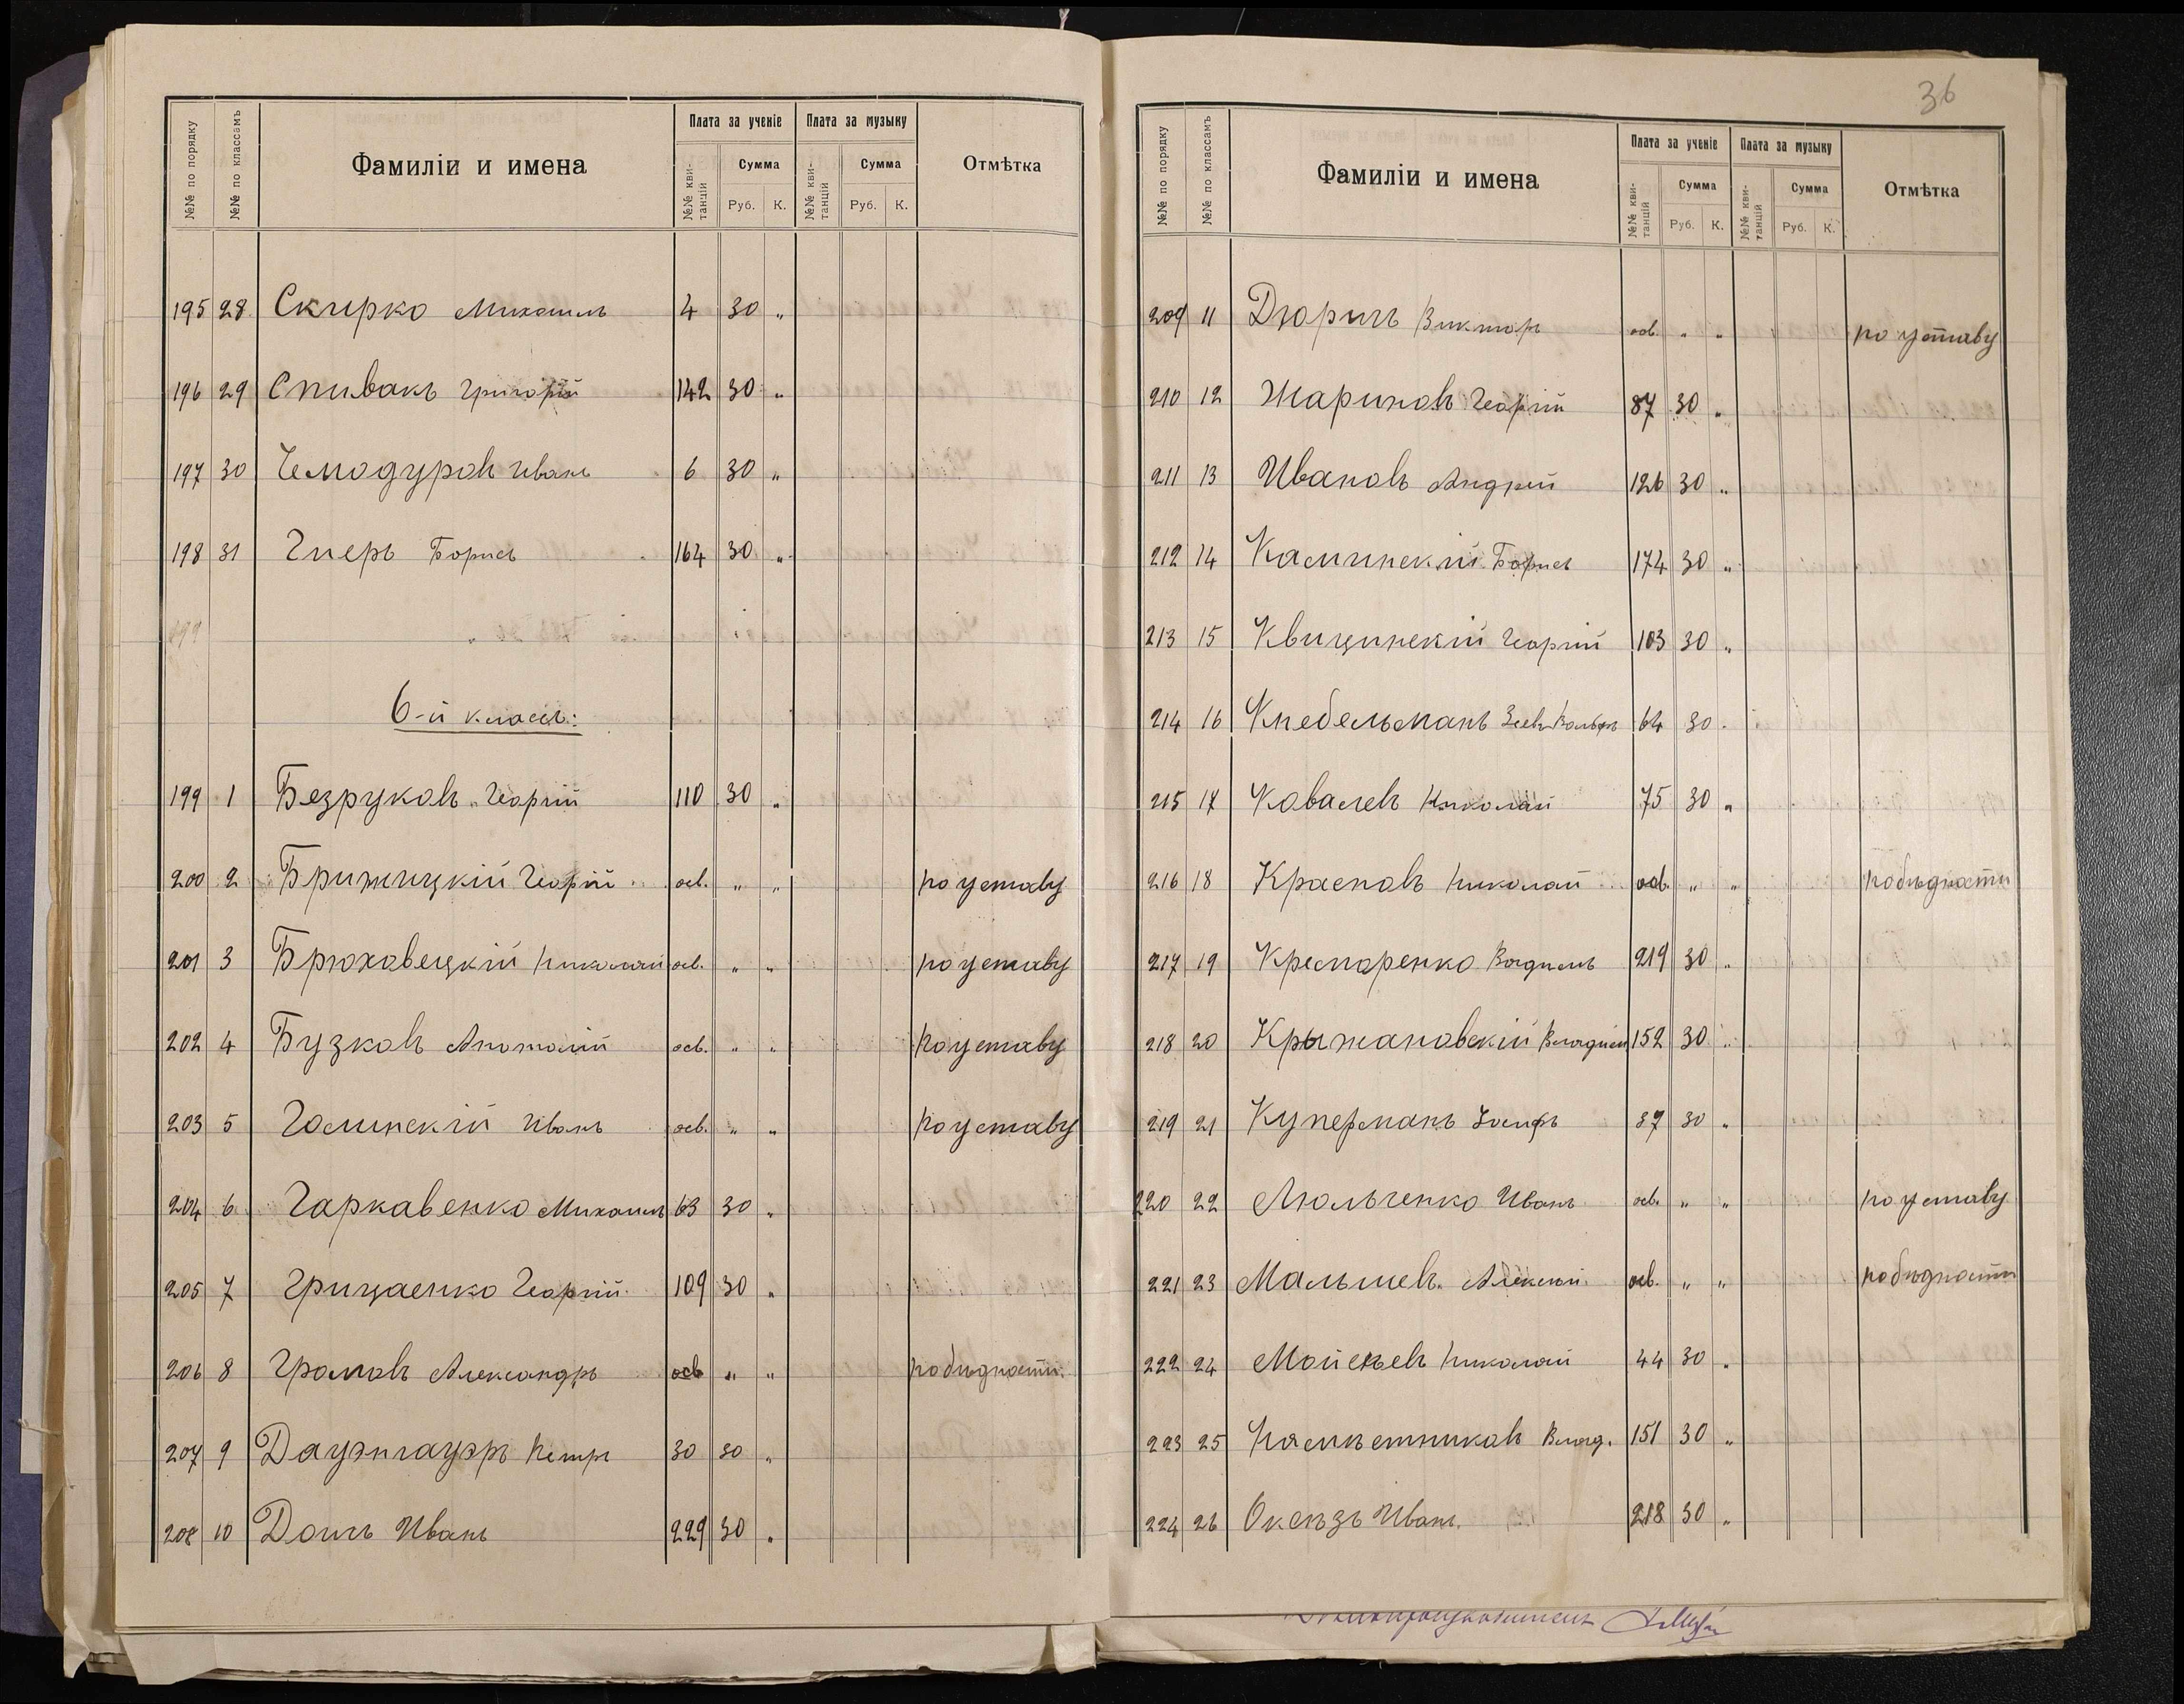 №№ по порядку №№ по классамъ Фамиліи и имена Плата за ученіе Плата за музыку Отмѣтка
№№ кви-танцій Сумма №№ кви-танцій Сумма
Руб. К. Руб. К.
195 28 Скирко Михаилъ 4 30 „
196 29 Спивакъ Григорій 142 30 „
197 30 Чемодуровъ Иванъ 6 30 „
198 31 Борисъ 164 30 „
199
6-й классъ:
199 1 Безруковъ Георгій 110 30 „
200 2 Брижицкій Георгій осв. „ „ по уставу
201 3 Брюховецкій Николай осв. „ „ по уставу
202 4 Бузковъ Анатолій осв. „ „ по уставу
203 5 Галинскій Иванъ осв. „ „ по уставу
204 6 Гаркавенко Михаилъ 63 30 „
205 7 Грицаенко Георгій 109 30 „
206 8 Громовъ Александръ осв „ „ по бѣдности.
207 9 Дауэнгауэръ Петръ 30 30 „
208 10 Иванъ 229 30 „
36
№№ по порядку №№ по классамъ Фамиліи и имена Плата за ученіе Плата за музыку Отмѣтка
№№ кви-танцій Сумма №№ кви-танцій Сумма
Руб. К. Руб. К.
209 11 Дюричъ Викторъ осв. „ „ по уставу
210 12 Жариновъ Георгій 87 30 „
211 13 Ивановъ Андрей 126 30 „
212 14 Калинскій Борисъ 174 30 „
213 15 Квицинскій Георгій 103 30 „
214 16 Кнебельманъ 64 30 „
215 17 Ковалевъ Николай 75 30 „
216 18 Красновъ Николай осв. „ „ по бѣдности
217 19 Кремаренко 219 30 „
218 20 Крыжановскій Владим 152 30 „
219 21 Куперманъ Іосифъ 37 30 „
220 22 Люльченко Иванъ осв. „ „ по уставу
221 23 Малышевъ Алексѣй осв. „ „ по бѣдности
222 24 Николай 44 30 „
223 25 Намѣстниковъ Влад. 151 30 „
224 26 Иванъ. 218 30 „